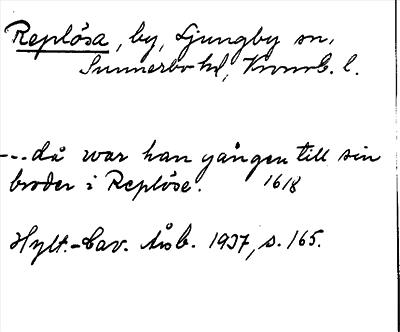 Replösa, by, Ljungby sn,
Sunnerbo hd, Kronob. l.
--- då war han gången till sin
broder i Replöse. 1618
Hylt.-Cav. Årsb. 1937, s. 165.